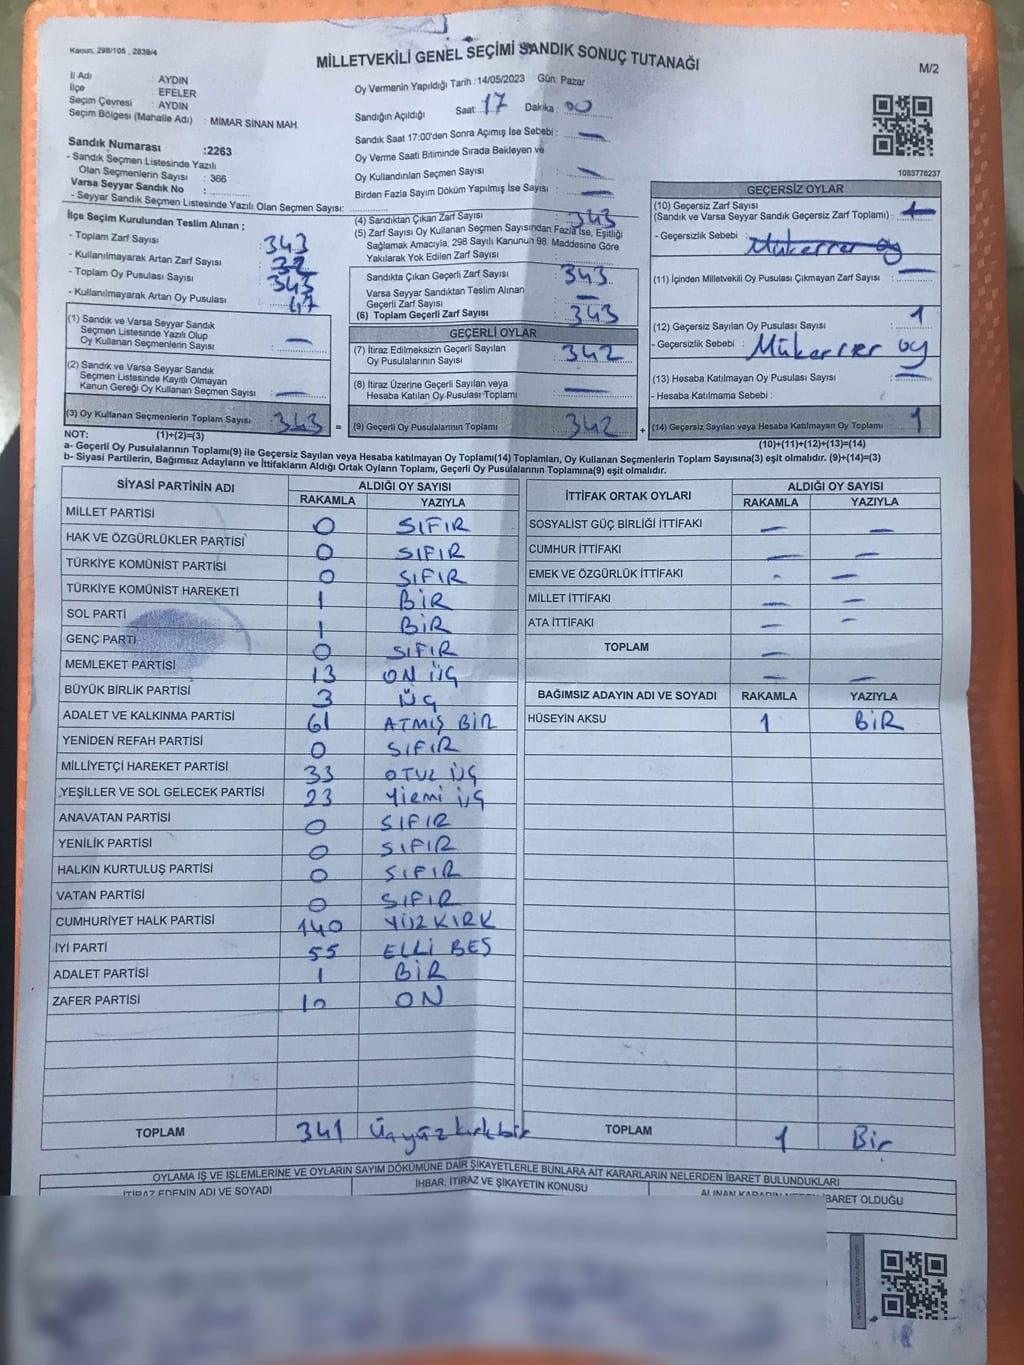 Kanun: 298/105 , 2839/4
MİLLETVEKİLİ GENEL SEÇİMİ SANDIK SONUÇ TUTANAĞI
M/2
İl Adı : AYDIN
İlçe : EFELER
Seçim Çevresi : AYDIN
Seçim Bölgesi (Mahalle Adı) : MİMAR SİNAN MAH.
Oy Vermenin Yapıldığı Tarih : 14/05/2023 Gün: Pazar
Sandığın Açıldığı Saat: 17 Dakika : 00
Sandık Saat 17:00'den Sonra Açımış İse Sebebi : —
Oy Verme Saati Bitiminde Sırada Bekleyen ve
Oy Kullandırılan Seçmen Sayısı : —
Birden Fazla Sayım Döküm Yapılmış İse Sayısı : —
1083778237
Sandık Numarası :2263
- Sandık Seçmen Listesinde Yazılı
Olan Seçmenlerin Sayısı : 366
Varsa Seyyar Sandık No :
- Seyyar Sandık Seçmen Listesinde Yazılı Olan Seçmen Sayısı:
İlçe Seçim Kurulundan Teslim Alınan ;
- Toplam Zarf Sayısı : 343
- Kullanılmayarak Artan Zarf Sayısı : 32
- Toplam Oy Pusulası Sayısı : 343
- Kullanılmayarak Artan Oy Pusulası : 47
(1) Sandık ve Varsa Seyyar Sandık
Seçmen Listesinde Yazılı Olup
Oy Kullanan Seçmenlerin Sayısı : —
(2) Sandık ve Varsa Seyyar Sandık
Seçmen Listesinde Kayıtlı Olmayan
Kanun Gereği Oy Kullanan Seçmen Sayısı : —
(3) Oy Kullanan Seçmenlerin Toplam Sayısı : 343 =
(4) Sandıktan Çıkan Zarf Sayısı : 343
(5) Zarf Sayısı Oy Kullanan Seçmen Sayısından Fazla İse, Eşitliği
Sağlamak Amacıyla, 298 Sayılı Kanunun 98. Maddesine Göre
Yakılarak Yok Edilen Zarf Sayısı :
Sandıkta Çıkan Geçerli Zarf Sayısı : 343
Varsa Seyyar Sandıktan Teslim Alınan
Geçerli Zarf Sayısı : —
(6) Toplam Geçerli Zarf Sayısı : 343
GEÇERLİ OYLAR
(7) İtiraz Edilmeksizin Geçerli Sayılan
Oy Pusulalarının Sayısı : 342
(8) İtiraz Üzerine Geçerli Sayılan veya
Hesaba Katılan Oy Pusulası Toplamı : —
(9) Geçerli Oy Pusulalarının Toplamı : 342 +
GEÇERSİZ OYLAR
(10) Geçersiz Zarf Sayısı
(Sandık ve Varsa Seyyar Sandık Geçersiz Zarf Toplamı) : 1
- Geçersizlik Sebebi : Mükerrer oy
(11) İçinden Milletvekili Oy Pusulası Çıkmayan Zarf Sayısı : —
(12) Geçersiz Sayılan Oy Pusulası Sayısı : 1
- Geçersizlik Sebebi : Mükerrer oy
(13) Hesaba Katılmayan Oy Pusulası Sayısı : —
- Hesaba Katılmama Sebebi :
(14) Geçersiz Sayılan veya Hesaba Katılmayan Oy Toplamı : 1
NOT: (1)+(2)=(3)
(10)+(11)+(12)+(13)=(14)
a- Geçerli Oy Pusulalarının Toplamı(9) ile Geçersiz Sayılan veya Hesaba katılmayan Oy Toplamı(14) Toplamları, Oy Kullanan Seçmenlerin Toplam Sayısına(3) eşit olmalıdır. (9)+(14)=(3)
b- Siyasi Partilerin, Bağımsız Adayların ve İttifakların Aldığı Ortak Oyların Toplamı, Geçerli Oy Pusulalarının Toplamına(9) eşit olmalıdır.
SİYASİ PARTİNİN ADI ALDIĞI OY SAYISI
RAKAMLA YAZIYLA
MİLLET PARTİSİ 0 SIFIR
HAK VE ÖZGÜRLÜKLER PARTİSİ 0 SIFIR
TÜRKİYE KOMÜNİST PARTİSİ 0 SIFIR
TÜRKİYE KOMÜNİST HAREKETİ 1 BİR
SOL PARTİ 1 BİR
GENÇ PARTİ 0 SIFIR
MEMLEKET PARTİSİ 13 ON ÜÇ
BÜYÜK BİRLİK PARTİSİ 3 ÜÇ
ADALET VE KALKINMA PARTİSİ 61 ATMIŞ BİR
YENİDEN REFAH PARTİSİ 0 SIFIR
MİLLİYETÇİ HAREKET PARTİSİ 33 OTUZ ÜÇ
YEŞİLLER VE SOL GELECEK PARTİSİ 23 Yirmi üç
ANAVATAN PARTİSİ 0 SIFIR
YENİLİK PARTİSİ 0 SIFIR
HALKIN KURTULUŞ PARTİSİ 0 SIFIR
VATAN PARTİSİ 0 SIFIR
CUMHURİYET HALK PARTİSİ 140 YÜZ KIRK
İYİ PARTİ 55 ELLİ BEŞ
ADALET PARTİSİ 1 BİR
ZAFER PARTİSİ 10 ON
TOPLAM 341 Üçyüzkırkbir
İTTİFAK ORTAK OYLARI ALDIĞI OY SAYISI
RAKAMLA YAZIYLA
SOSYALİST GÜÇ BİRLİĞİ İTTİFAKI — —
CUMHUR İTTİFAKI — —
EMEK VE ÖZGÜRLÜK İTTİFAKI - —
MİLLET İTTİFAKI — —
ATA İTTİFAKI — —
TOPLAM —
— —
BAĞIMSIZ ADAYIN ADI VE SOYADI RAKAMLA YAZIYLA
HÜSEYİN AKSU 1 BİR
TOPLAM 1 Bir
OYLAMA İŞ VE İŞLEMLERİNE VE OYLARIN SAYIM DÖKÜMÜNE DAİR ŞİKAYETLERLE BUNLARA AİT KARARLARIN NELERDEN İBARET BULUNDUKLARI
İTİRAZ EDENİN ADI VE SOYADI
İHBAR, İTİRAZ VE ŞİKAYETİN KONUSU
ALINAN KARARIN NEDEN İBARET OLDUĞU